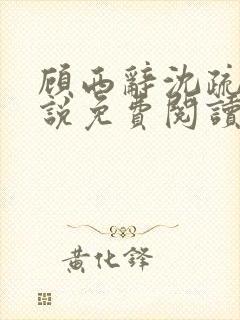 顾西辭沈疏
說免費閱讀
黃化鋒